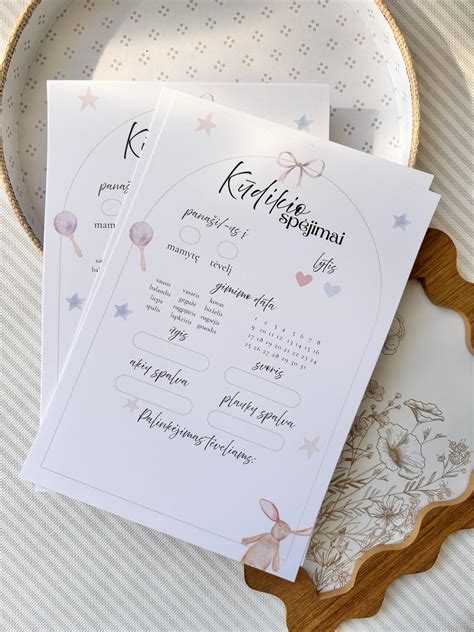 Kūdikio
spėjimai
panaši/-us į
mamytę tėvelį
lytis
gimimo data
sausis vasaris kovas
balandis gegužė birželis
liepa rugpjūtis rugsėjis
spalis lapkritis gruodis
1 2 3 4 5 6 7 8
9 10 11 12 13 14 15 16
17 18 19 20 21 22 23 24
25 26 27 28 29 30 31
ūgis
svoris
akių spalva
plaukų spalva
Palinkėjimas tėveliams: